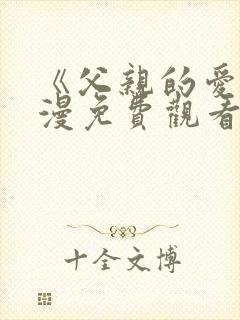 《父親的愛
漫免費觀看
十全文博